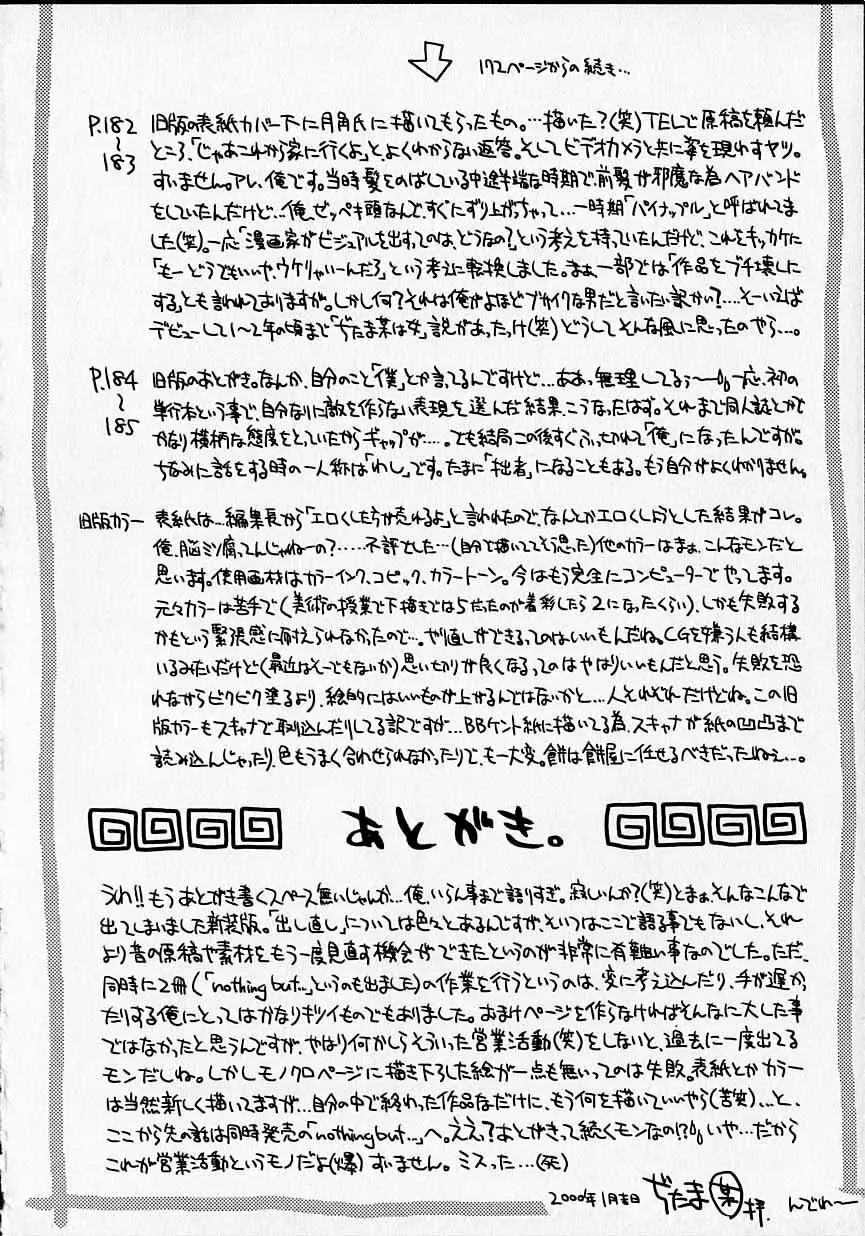 172ページからの続き…
P.182 旧版の表紙カバー下に月角氏に描いてもらったもの。…描いた?(笑)TELで原稿を頼んだ
〜 ところ、「じゃあこれから家に行くよ」と、よくわからない返答。そしてビデオカメラと共に姿を現わすヤツ。
183 すいません。アレ、俺です。当時髪をのばしている中途半端な時期で前髪が邪魔な為ヘアバンド
をしていたんだけど…俺、ゼッペキ頭なんで、すぐにずり上がっちゃって…一時期「パイナップル」と呼ばれてま
した(笑)。一応「漫画家がビジュアルを出すってのは、どうなの?」という考えを持っていたんだけど、これをキッカケに
「もーどうでもいいや、ウケりゃいーんだろ」という考えに転換しました。まぁ、一部では「作品をブチ壊しに
する」とも言われておりますが。しかし何?それは俺がよほどブサイクな男だと言いたい訳かい?…そーいえば
デビューして1〜2年の頃まで「ぢたま某は女」説があったっけ(笑)どうしてそんな風に思ったのやら…。
P.184 旧版のあとがき。なんか、自分のこと「僕」とか言ってるんですけど…ああっ無理してるぅ〜一応、初の
〜 単行本という事で、自分なりに敵を作らない表現を選んだ結果、こうなったはず。それまで同人誌とかで
185 かなり横柄な態度をとっていたからギャップが…。でも結局この後すぐふっきれて「俺」になったんですが。
ちなみに話をする時の一人称は「わし」です。たまに「拙者」になることもある。もう自分がよくわかりません。
旧版カラー 表紙は…編集長から「エロくした方が売れるよ」と言われたので、なんとかエロくしようとした結果がコレ。
俺、脳ミソ腐ってんじゃねーの?……不評でした…(自分で描いててそう思った)他のカラーはまぁ、こんなモンだと
思います。使用画材はカラーインク、コピック、カラートーン。今はもう完全にコンピューターでやってます。
元々カラーは苦手で(美術の授業で下描きでは5だったのが着彩したら2になったくらい)、しかも失敗する
かもという緊張感に耐えられなかったので…。やり直しができるってのはいいもんだね。CGを嫌う人も結構
いるみたいだけど(最近はそーでもないか)思い切りが良くなるってのはやはりいいもんだと思う。失敗を恐
れながらビクビク塗るより、絵的にはいいものが上がるんではないかと…人それぞれだけどね。この旧
版カラーもスキャナで取り込んだりしてる訳ですが…BBケント紙に描いてる為、スキャナが紙の凹凸まで
読み込んじゃったり、色もうまく合わせられなかったりで、もー大変。餅は餅屋に任せるべきだったねぇ…。
あとがき。
うわ!!もうあとがき書くスペース無いじゃんか…俺、いらん事まで語りすぎ。寂しいんか?(笑)とまぁ、そんなこんなで
出てしまいました新装版。「出し直し」については色々とあるんですが、そいつはここで語る事でもないし、それ
より昔の原稿や素材をもう一度見直す機会ができたというのが非常に有難い事なのでした。ただ、
同時に2冊(「nothing but…」というのも出ました)の作業を行うというのは、変に考え込んだり、手が遅かっ
たりする俺にとってはかなりキツイものでもありました。おまけページを作らなければそんなに大した事
ではなかったと思うんですが、やはり何かしらそういった営業活動(笑)をしないと、過去に一度出てる
モンだしね。しかしモノクロページに描き下ろした絵が一点も無いってのは失敗。表紙とかカラー
は当然新しく描いてますが…自分の中で終わった作品なだけに、もう何を描いていいやら(苦笑)…と、
ここから先の話は同時発売の「nothing but…」へ。ええ?あとがきって続くモンなの!?いや…だから
これが営業活動というモノだよ(爆)すいません。ミスった…(死)
2000年1月吉日 ぢたま某 拝. んでわ〜